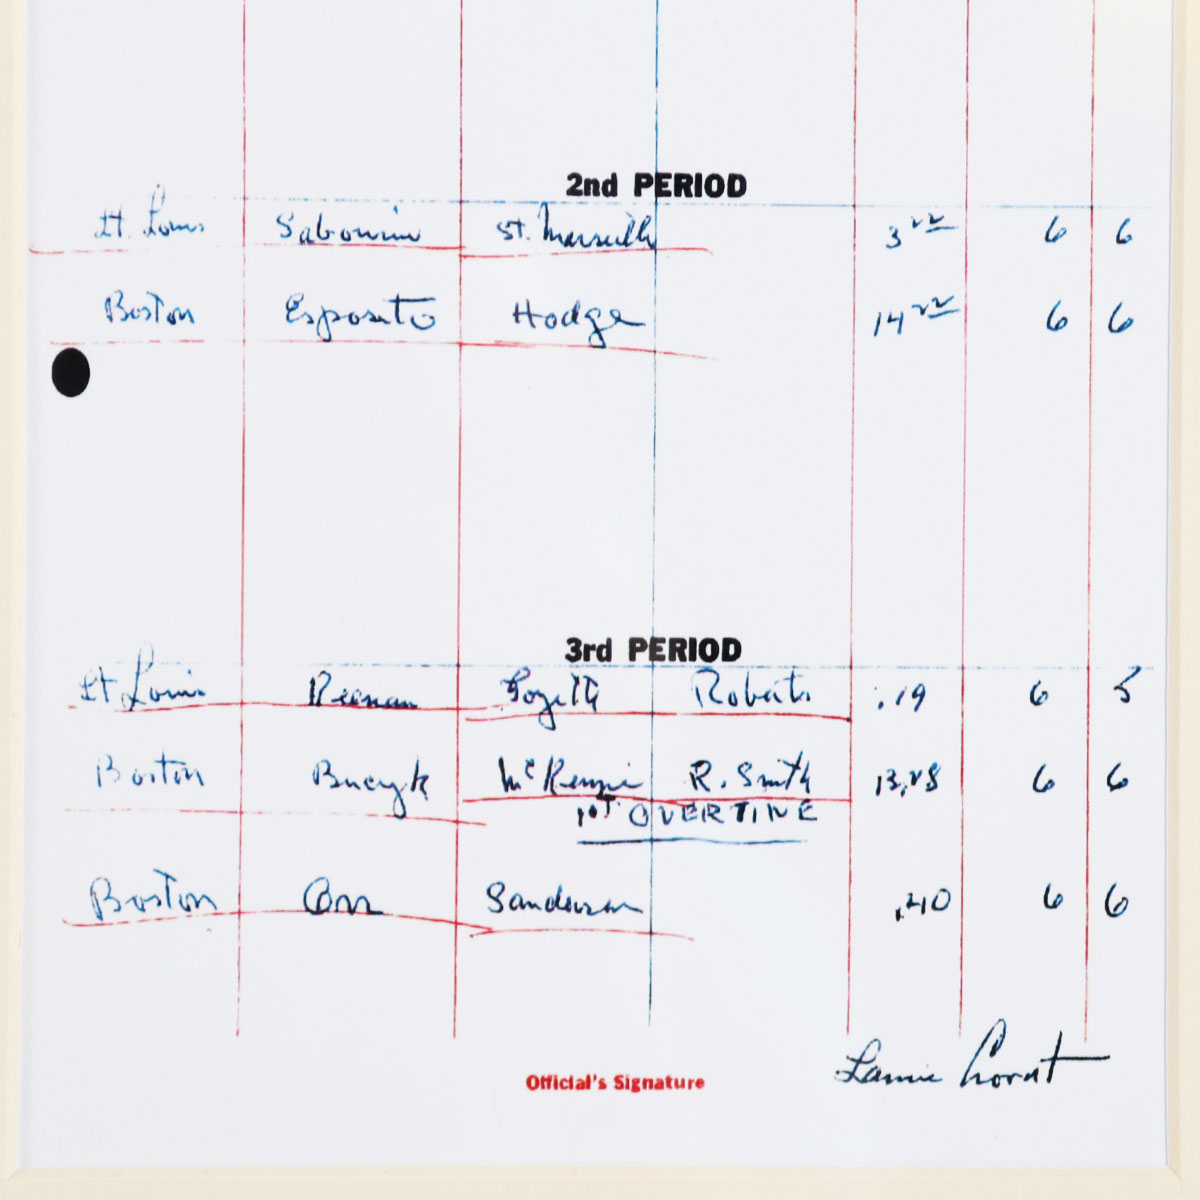 2nd PERIOD
St. Louis Sabourin St. Marseille 3 22 6 6
Boston Esposito Hodge 14 22 6 6
3rd PERIOD
St Louis Keenan Goyette Roberts .19 6 5
Boston Bucyk McKenzie R. Smith 13.28 6 6
1ST OVERTIME
Boston Orr Sanderson .40 6 6
Official's Signature